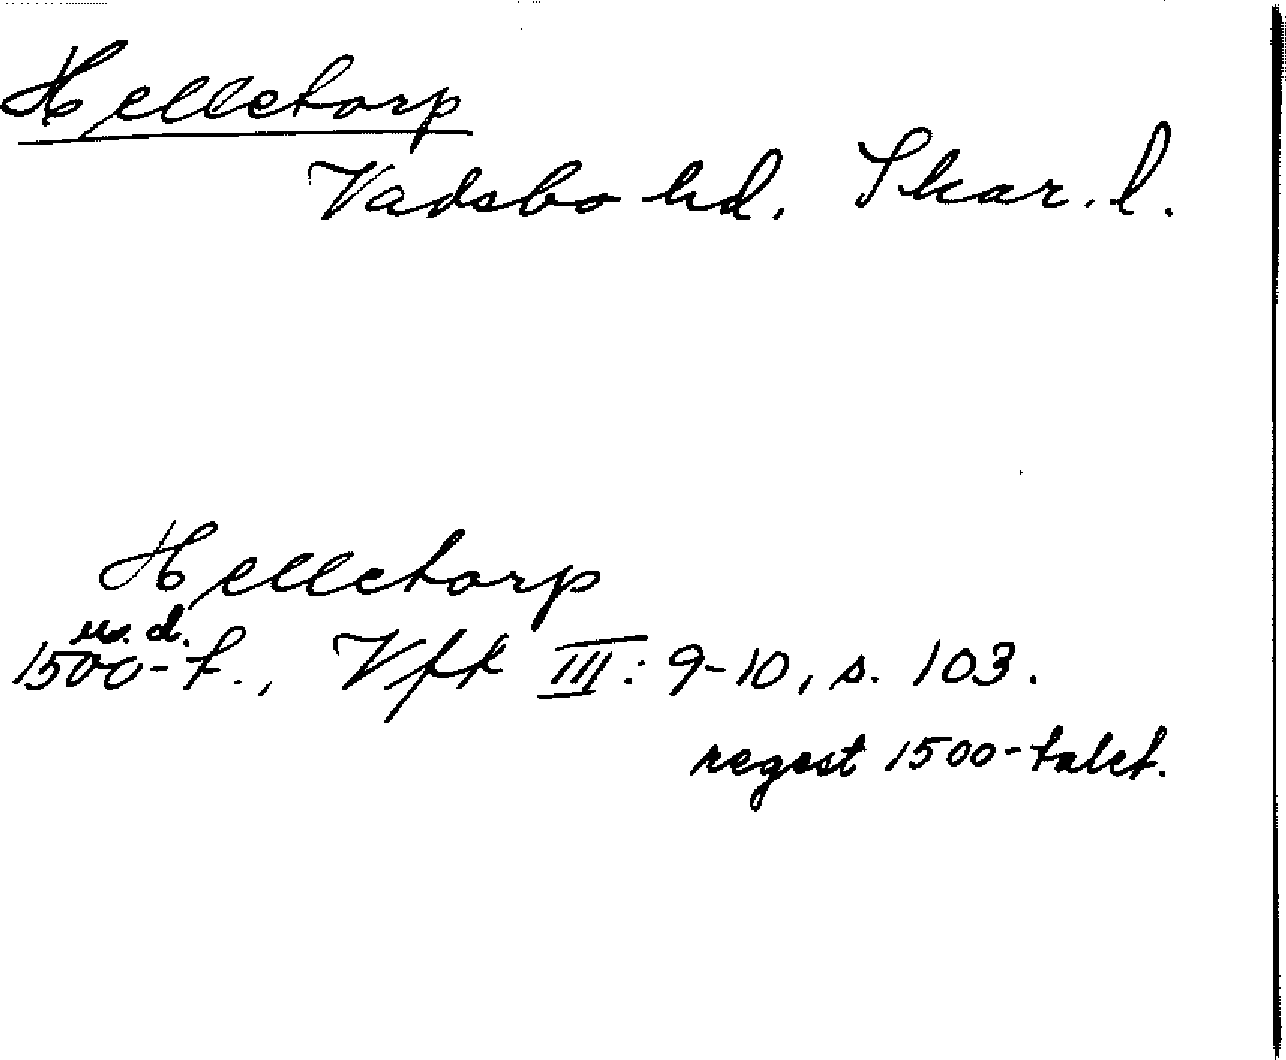 Helletorp
Vadsbo hd. Skar. l.
Helletorp
u. d.
1500-t., Vfk III: 9-10, s. 103.
regest 1500-talet.